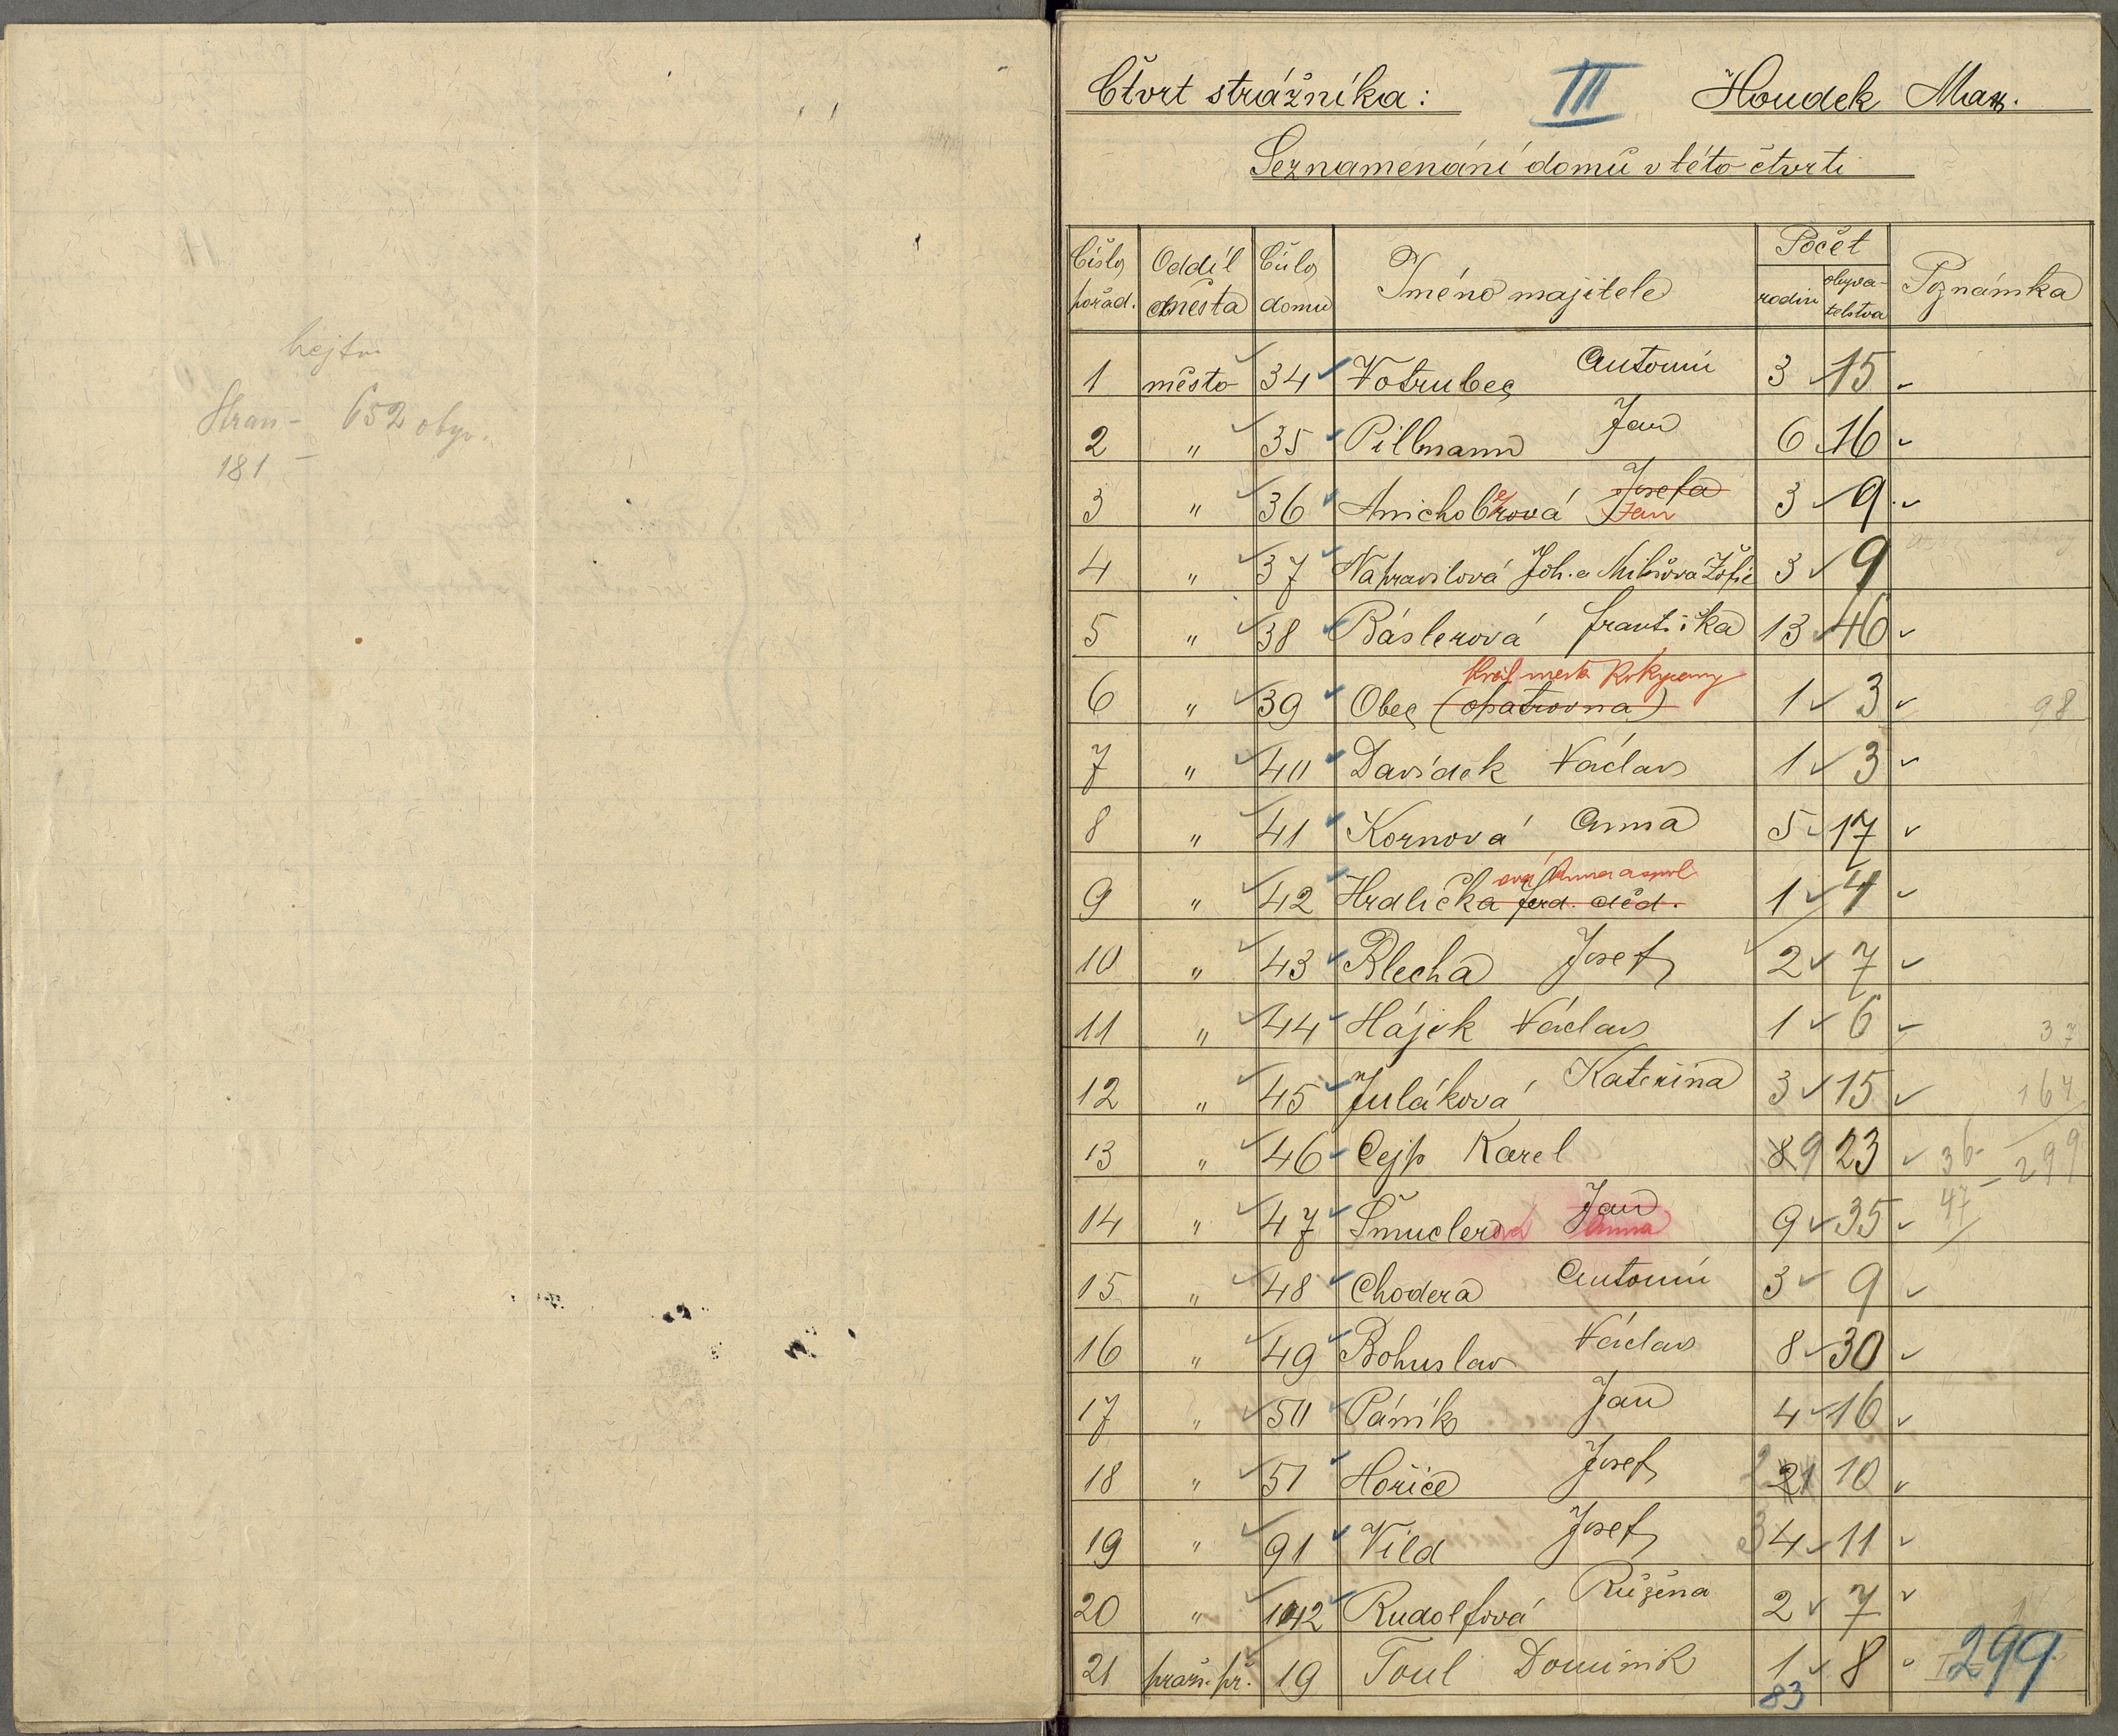 hejtm
Stran - 652 obyv.
181 -
Čtvrt strážníka: III Houdek Max.
Seznamenání domů v této čtvrti
Číslo pořad. Oddíl města Číslo domu Jméno majitele Počet rodin obyva-telstva Poznámka
1 město 34 Votrubec Antonín 3 15
2 " 35 Pillmann Jan 6 16
3 " 36 Josefa Jan 3 9
4 " 37 Nahravilová Joh. a Žofie 3 9
5 " 38 Báslerová Františka 13 46
Král. města Rokycany
6 " 39 Obec (opatrovna) 1 3 98
7 " 40 Davídek Václav 1 3
8 " 41 Kornová Anna 5 17
ová Anna a spol
9 " 42 Hrdlička Ferd. děd. 1 4
10 " 43 Blecha Josef 2 7
11 " 44 Hájek Václav 1 6 37
12 " 45 Juláková Kateřina 3 15 164
13 " 46 Cejp Karel 8 9 23 36- 299
14 " 47 Šmucler ová Jan Anna 9 35 47
15 " 48 Chodera Antonín 3 9
16 " 49 Bohuslav Václav 8 30
17 " 50 Páník Jan 4 16
18 " 51 Hořice Josef 2 21 10
19 " 91 Vild Josef 3 4 11
20 " 142 Rudolfová Růžena 2 7
21 praž. př. 19 Toul Dominik 1 8 299
83